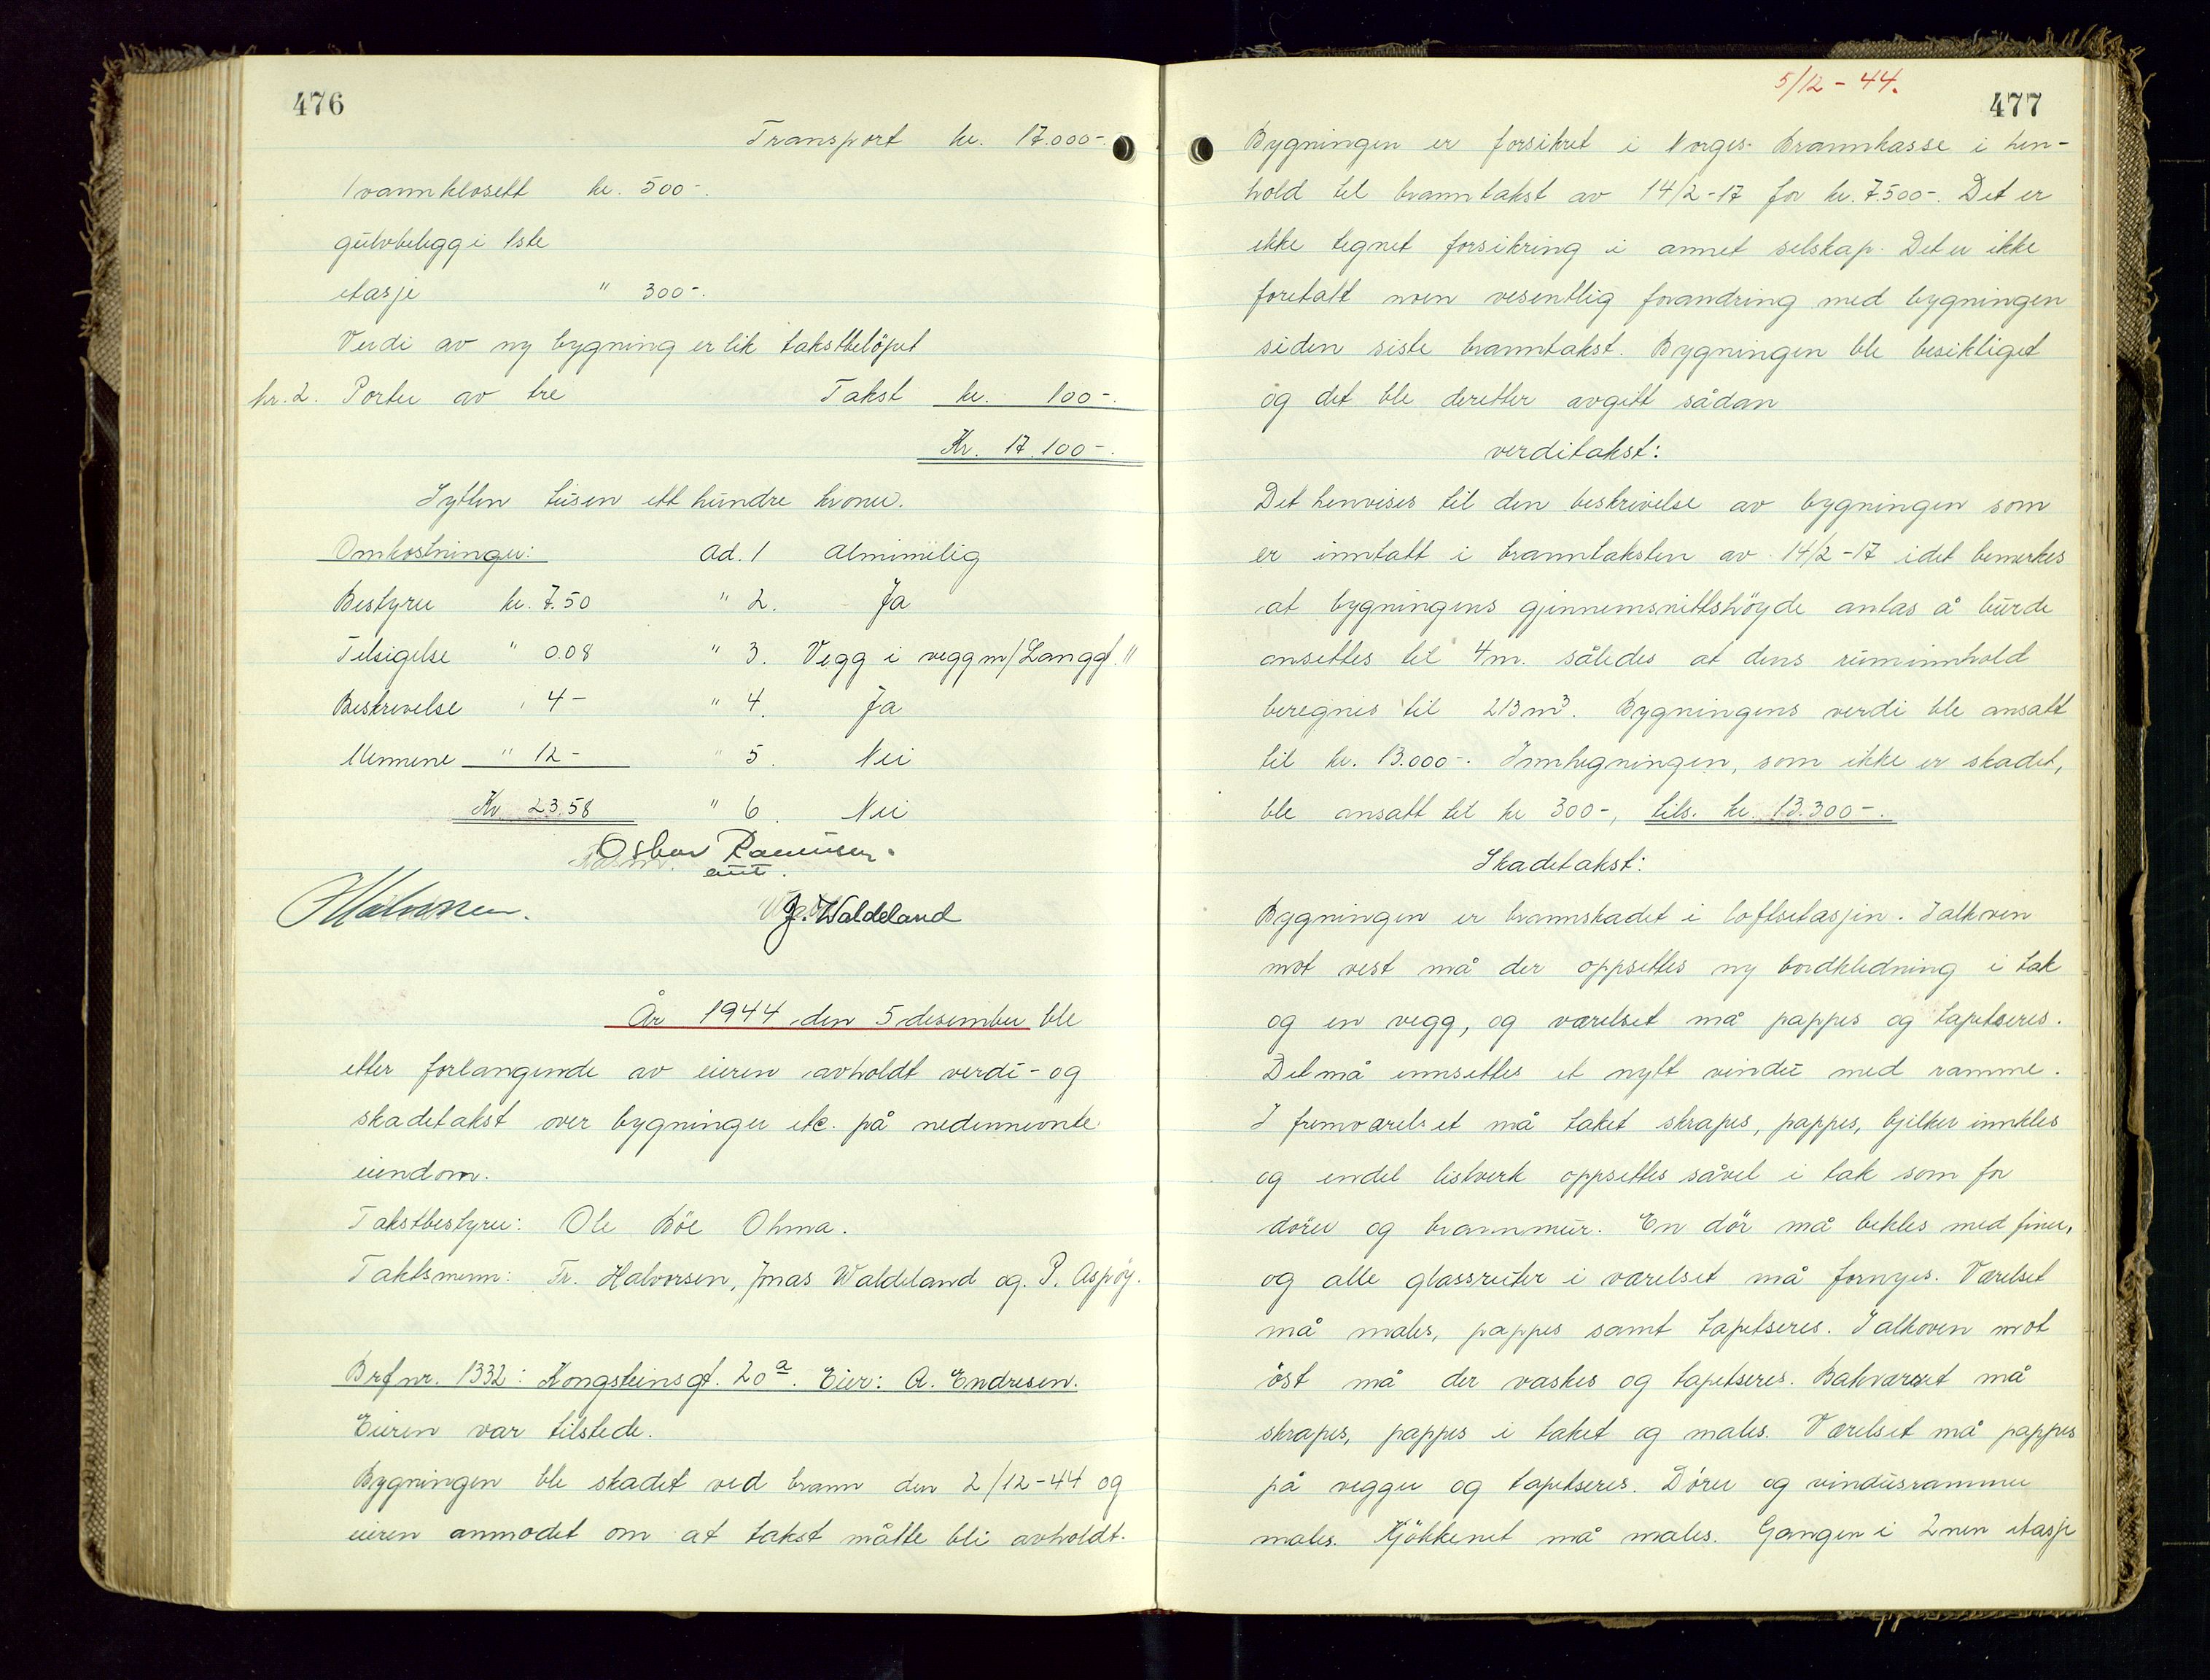 476
Transport kr. 17.000-.
1 vannklosett kr. 500-.
gulvbelegg i 1ste
etasje " 300-.
Verdi av ny bygning er lik takstbeløpet
nr. 2. Porter av tre Takst kr. 100-.
Kr. 17.100-.
Sytten tusen ett hundre kroner.
Omkostninger: ad. 1 Alminnelig
Bestyrer kr. 7.50 " 2. Ja
Tilsigelse " 0.08 " 3. Vegg i vegg m/Langgt. 11
Beskrivelse " 4- " 4. Ja
Mennene " 12- " 5. Nei
Kr. 23.58 " 6. Nei
Oskar
J. Waldeland
År 1944 den 5 desember ble
etter forlangende av eieren avholdt verdi- og
skadetakst over bygninger etc. på nedennevnte
eiendom.
Takstbestyrer: Ole Böe Ohma.
Takstmenn: Fr. Halvorsen, Jonas Waldeland og P. Aspöy.
Brf nr. 1332: Kongsteinsgt. 20a. Eier: A. Endresen.
Eieren var tilstede.
Bygningen ble skadet ved brann den 2/12-44 og
eieren anmodet om at takst måtte bli avholdt.
5/12-44.
477
Bygningen er forsikret i Norges Brannkasse i hen-
hold til branntakst av 14/2-17 for kr. 7.500-. Det er
ikke tegnet forsikring i annet selskap. Det er ikke
foretatt noen vesentlig forandring med bygningen
siden siste branntakst. Bygningen ble besiktiget
og det ble deretter avgitt sådan
verditakst:
Det henvises til den beskrivelse av bygningen som
er inntatt i branntaksten av 14/2-17 idet bemerkes
at bygningens gjennemsnittshöyde antas å burde
ansettes til 4 m. således at dens ruminnhold
beregnes til 213 m³. Bygningens verdi ble ansatt
til kr. 13.000-. Innhegningen, som ikke er skadet,
ble ansatt til kr 300-, tils. kr. 13.300-.
Skadetakst:
Bygningen er brannskadet i loftsetasjen. I alkoven
mot vest må der oppsettes ny bordkledning i tak
og en vegg, og værelset må pappes og tapetseres.
Det må innsettes et nytt vindu med ramme.
I fremværelset må taket skrapes, pappes, bjelker innkles
og endel listverk oppsettes såvel i tak som for
dører og brannmur. En dör må bekles med finer,
og alle glassruter i værelset må fornyes. Værelset
må males, pappes samt tapetseres. I alkoven mot
öst må der vaskes og tapetseres. Bakværset må
skrapes, pappes i taket og males. Værelset må pappes
på vegger og tapetseres. Dører og vindusrammer
males. Kjökkenet må males. Gangen i 2nen etasje